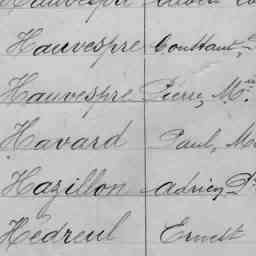 Hauvespre
Hauvespre Constant,
Hauvespre Pierre, M
Havard Paul, M
Hazillon Adrien, D
Hedreul Ernest